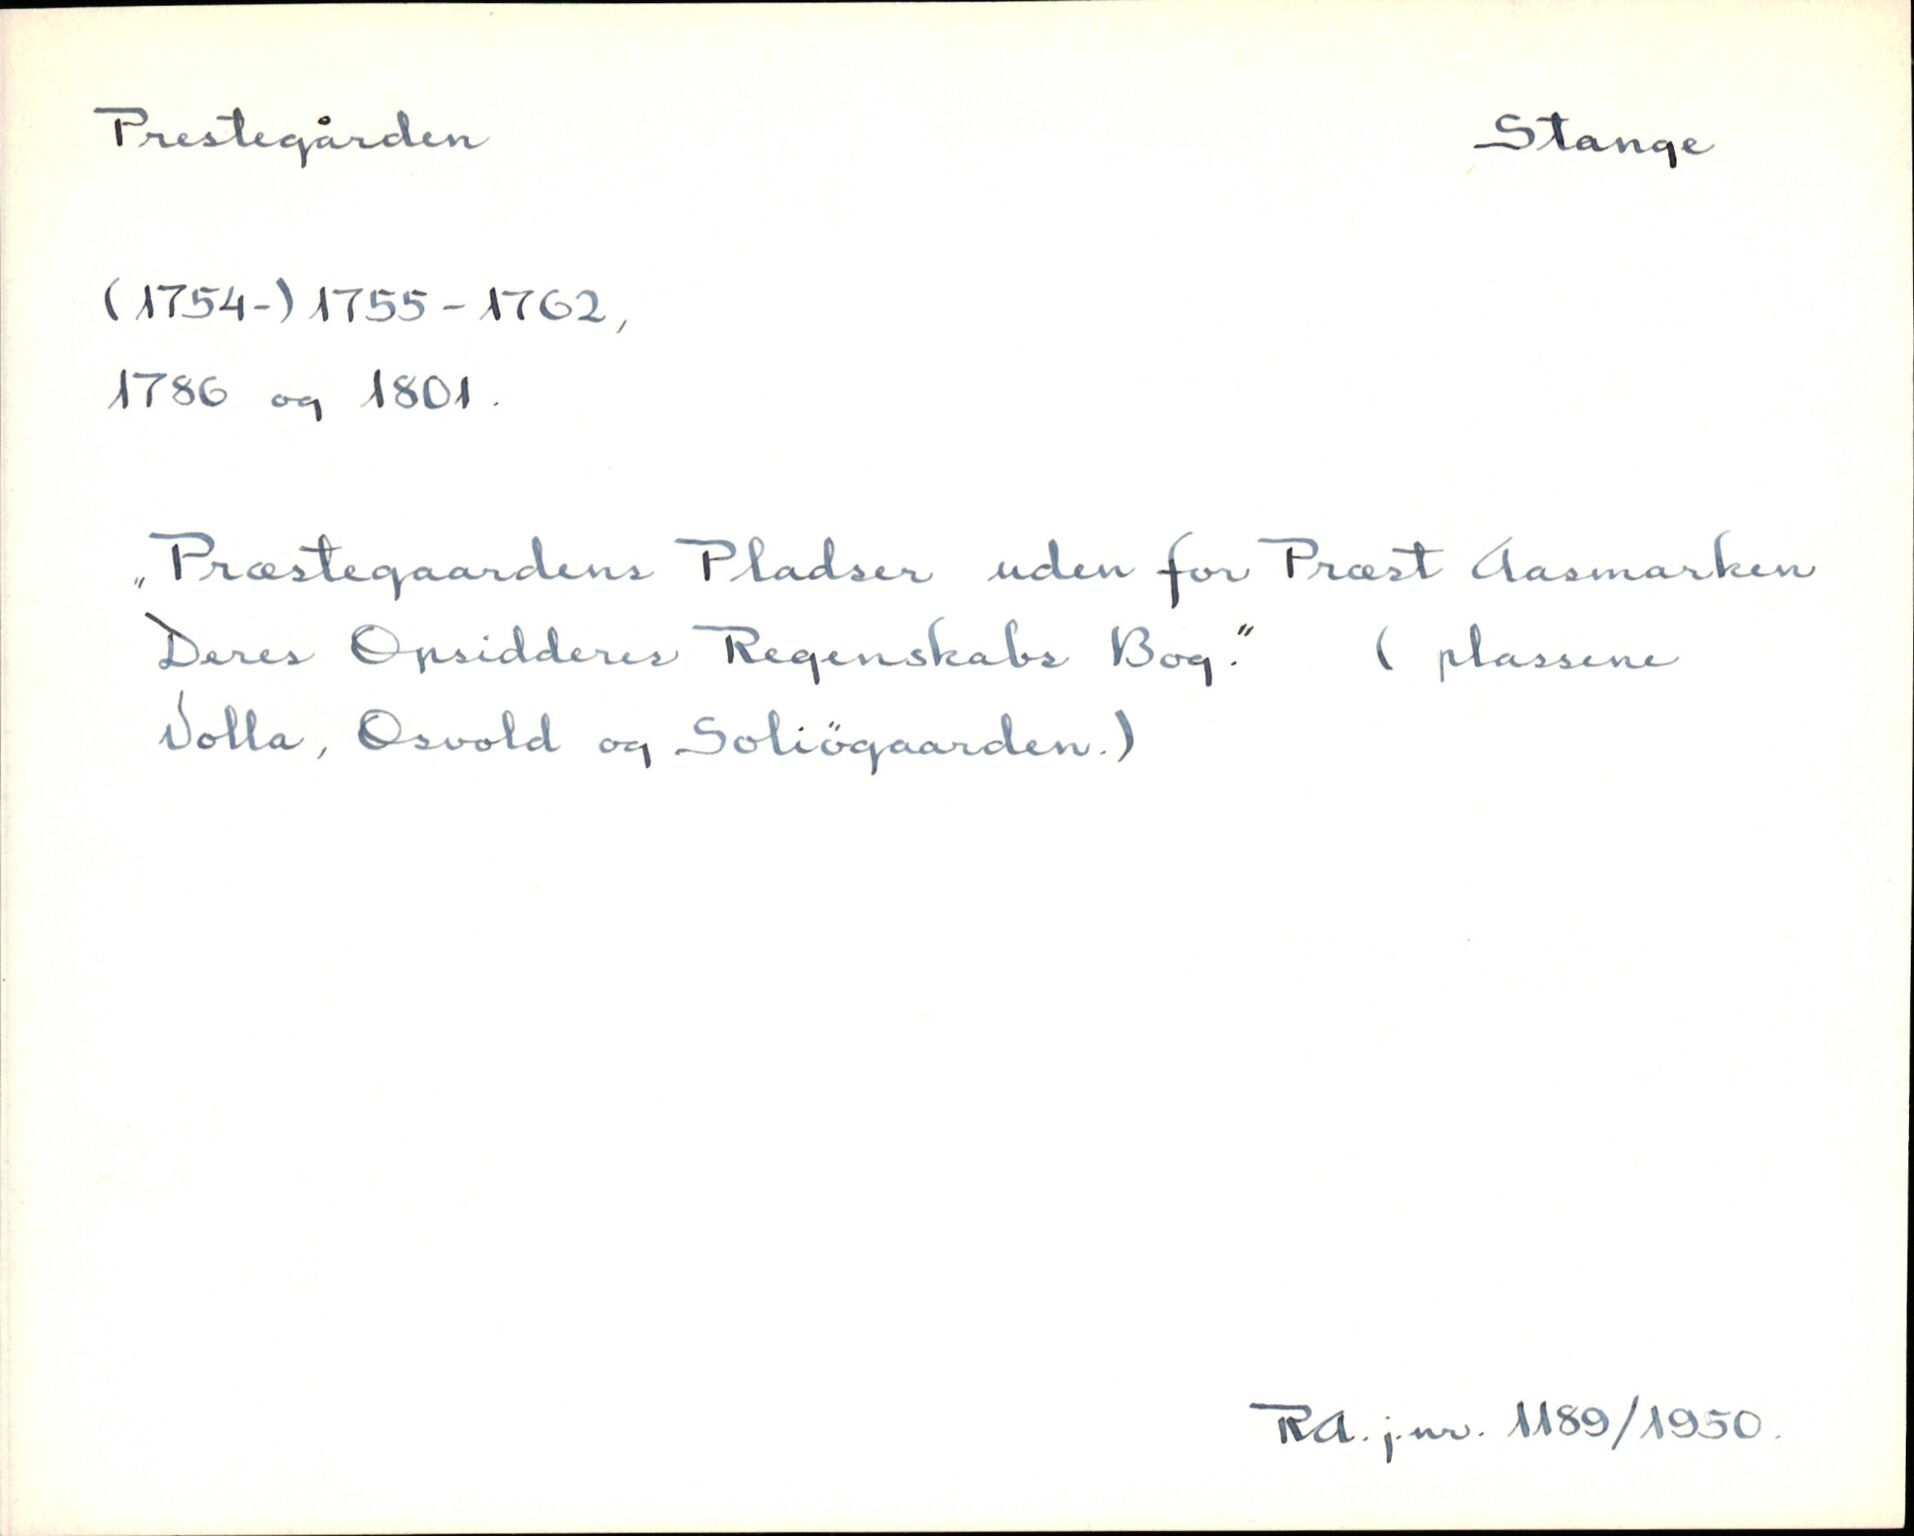 Prestegården Stange
(1754-) 1755 - 1762,
1786 og 1801.
„Præstegaardens Pladser uden for Præst Aasmarken
Deres Opsidderes Regenskabs Bog." ( plassene
Volla, Osvold og Soliögaarden.)
RA. j.nr. 1189/1950.